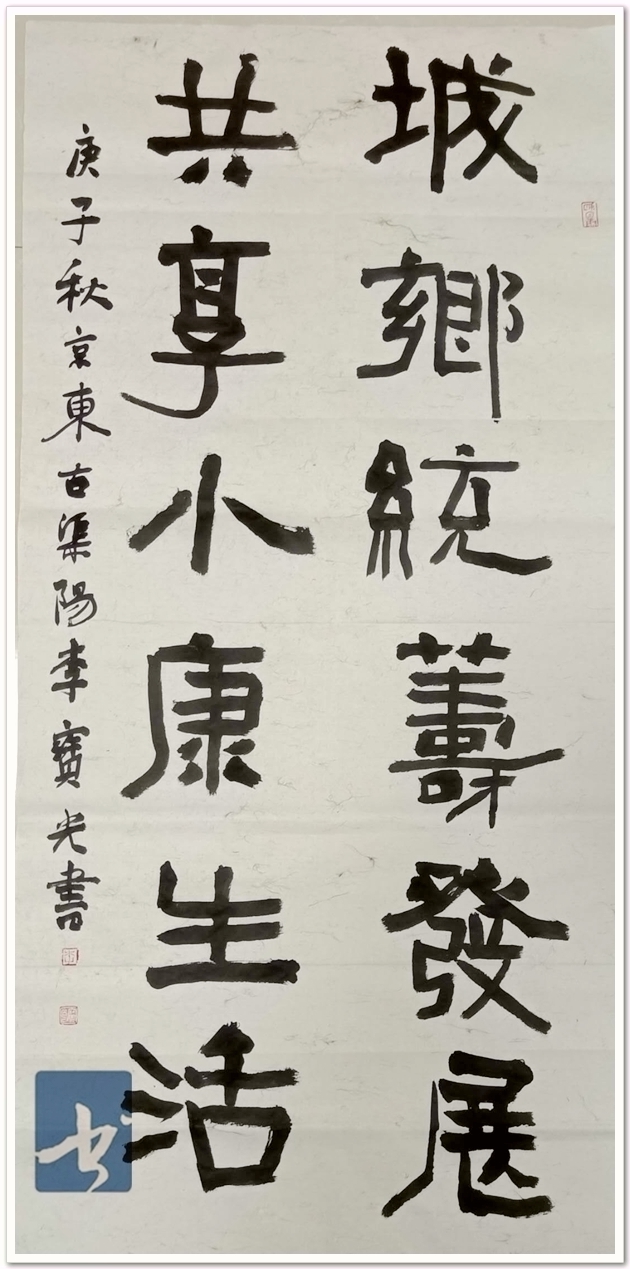 城鄉統籌發展
共享小康生活
庚子秋京東古渠陽李寶光書
书